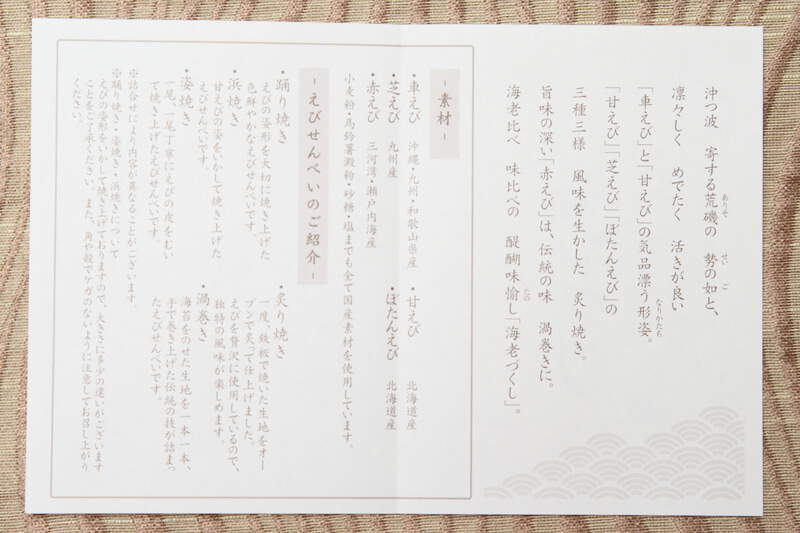 沖つ波 寄する荒磯の 勢の如と、
凛々しく めでたく 活きが良い
「車えび」と「甘えび」の気品漂う形姿。
「甘えび」「芝えび」「ぼたんえび」の
三種三様 風味を生かした 炙り焼き。
旨味の深い「赤えび」は、伝統の味 渦巻きに。
海老比べ 味比べの 醍醐味愉し「海老づくし」。
－素材－
・車えび 沖縄・九州・和歌山県産
・甘えび 北海道産
・芝えび 九州産
・ぼたんえび 北海道産
・赤えび 三河湾・瀬戸内海産
小麦粉・馬鈴薯澱粉・砂糖・塩までも全て国産素材を使用しています。
－えびせんべいのご紹介－
・踊り焼き
えびの姿形を大切に焼き上げた
色鮮やかなえびせんべいです。
・浜焼き
甘えびの姿をいかして焼き上げた
えびせんべいです。
・姿焼き
一尾、一尾丁寧にえびの皮をむい
て焼き上げたえびせんべいです。
・炙り焼き
一度、鉄板で焼いた生地をオー
ブンで炙って仕上げました。
えびを贅沢に使用しているので、
独特の風味が楽しめます。
・渦巻き
海苔をのせた生地を一本一本、
手で巻き上げた伝統の技が詰まっ
たえびせんべいです。
※詰合せにより内容が異なることがございます。
※踊り焼き・姿焼き・浜焼きについて
えびの姿形をいかして焼き上げておりますので、大きさに多少の違いがございます
ことをご了承ください。また、角や殻でケガのないように注意してお召し上がり
ください。